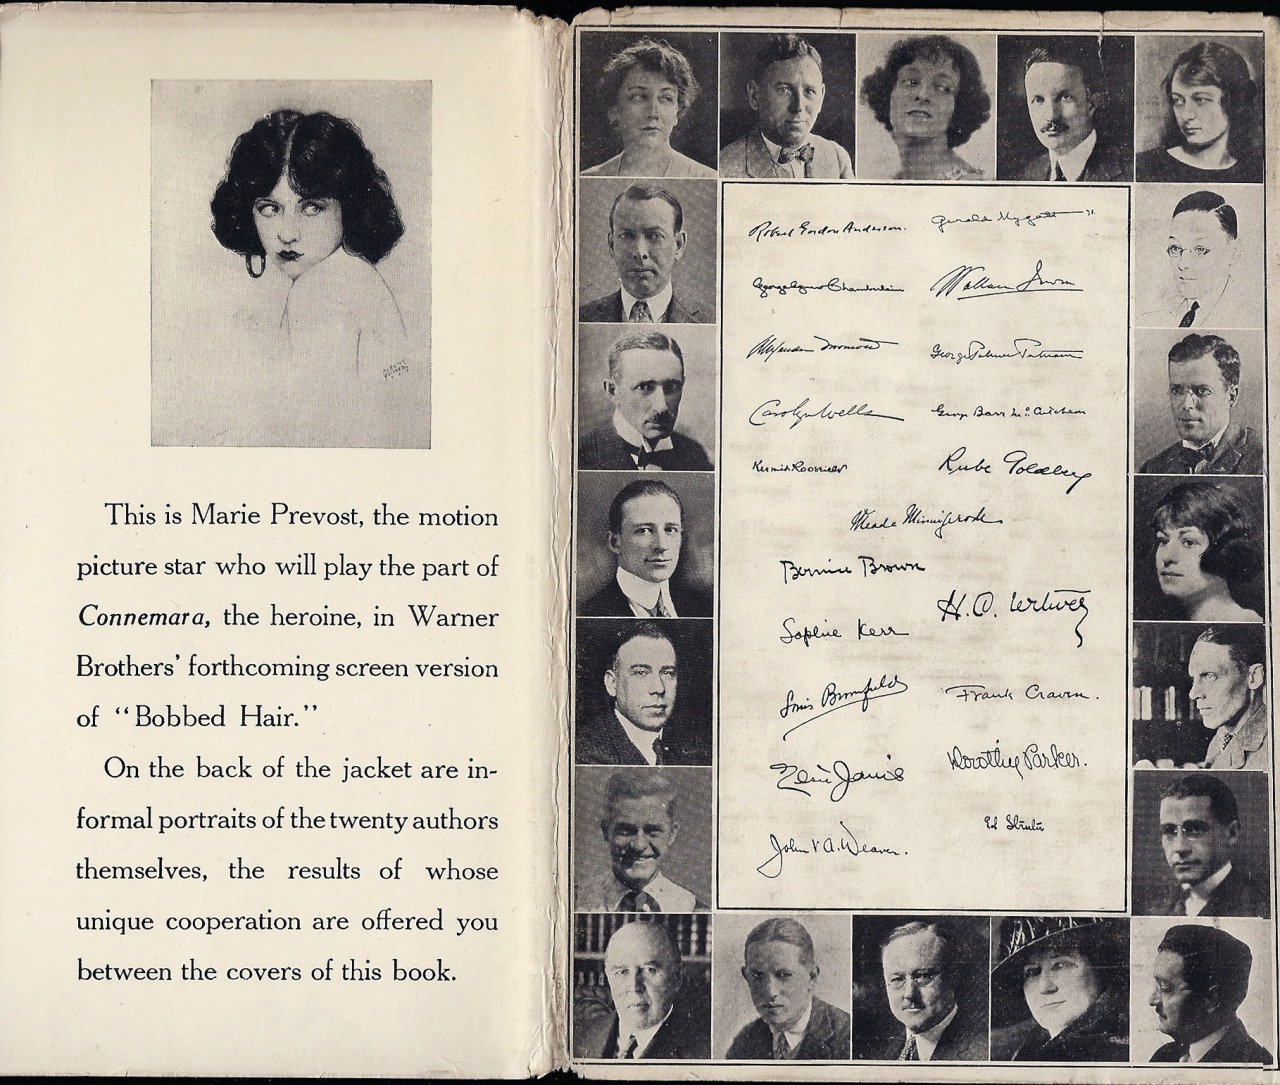 This is Marie Prevost, the motion
picture star who will play the part of
Connemara, the heroine, in Warner
Brothers' forthcoming screen version
of "Bobbed Hair."
On the back of the jacket are in-
formal portraits of the twenty authors
themselves, the results of whose
unique cooperation are offered you
between the covers of this book.
Robert Gordon Anderson.
Gerald Mygatt
George Agnew Chamberlain
Wallace Irwin
George Palmer Putnam
Carolyn Wells
George Barr McCutcheon
Kermit Roosevelt
Rube Goldberg
Meade Minnigerode
Bernice Brown
H. C. Witwer
Sophie Kerr
Louis Bromfield
Frank Craven.
Elsie Janis
Dorothy Parker.
Ed Streeter
John V. A. Weaver.